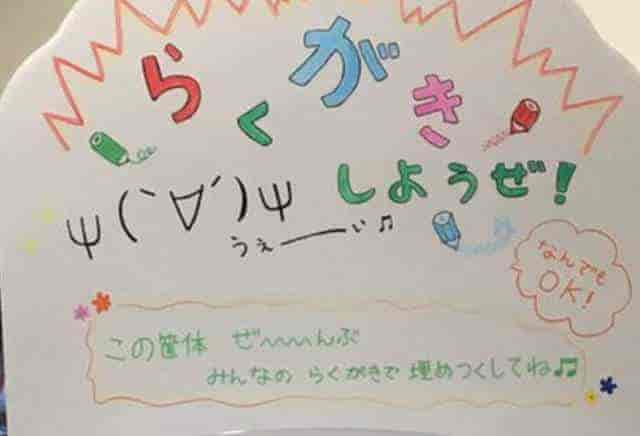 らくがき
しようぜ!
ψ(`∀´)ψ
うぇーーい♫
なんでも
OK!
この筐体 ぜ〜〜〜んぶ
みんなの らくがきで 埋めつくしてね♫